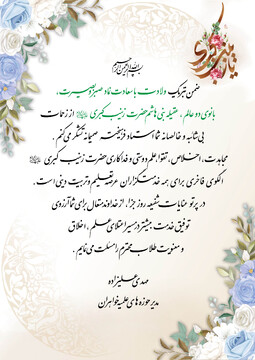 یا زینب کبری
بسم الله الرحمن الرحیم
ضمن تبریک ولادت باسعادت نماد صبر و بصیرت،
بانوی دو عالم، عقیله بنی هاشم حضرت زینب کبری از زحمات
بی شائبه و خالصانه شما استاد فرهیخته صمیمانه تشکر می کنم.
مجاهدت، اخلاص، تقوا، علم دوستی و فداکاری حضرت زینب کبری
الگوی فاخری برای همه خدمتگزاران عرصه تعلیم و تربیت دینی است.
در پرتو عنایات شفیعه روز جزا، از خداوند متعال برای شما آرزوی
توفیق خدمت بیشتر در مسیر اعتلای علم، اخلاق
و معنویت طلاب محترم مسئلت می نمایم.
مهدی علیزاده
مدیر حوزه های علمیه خواهران